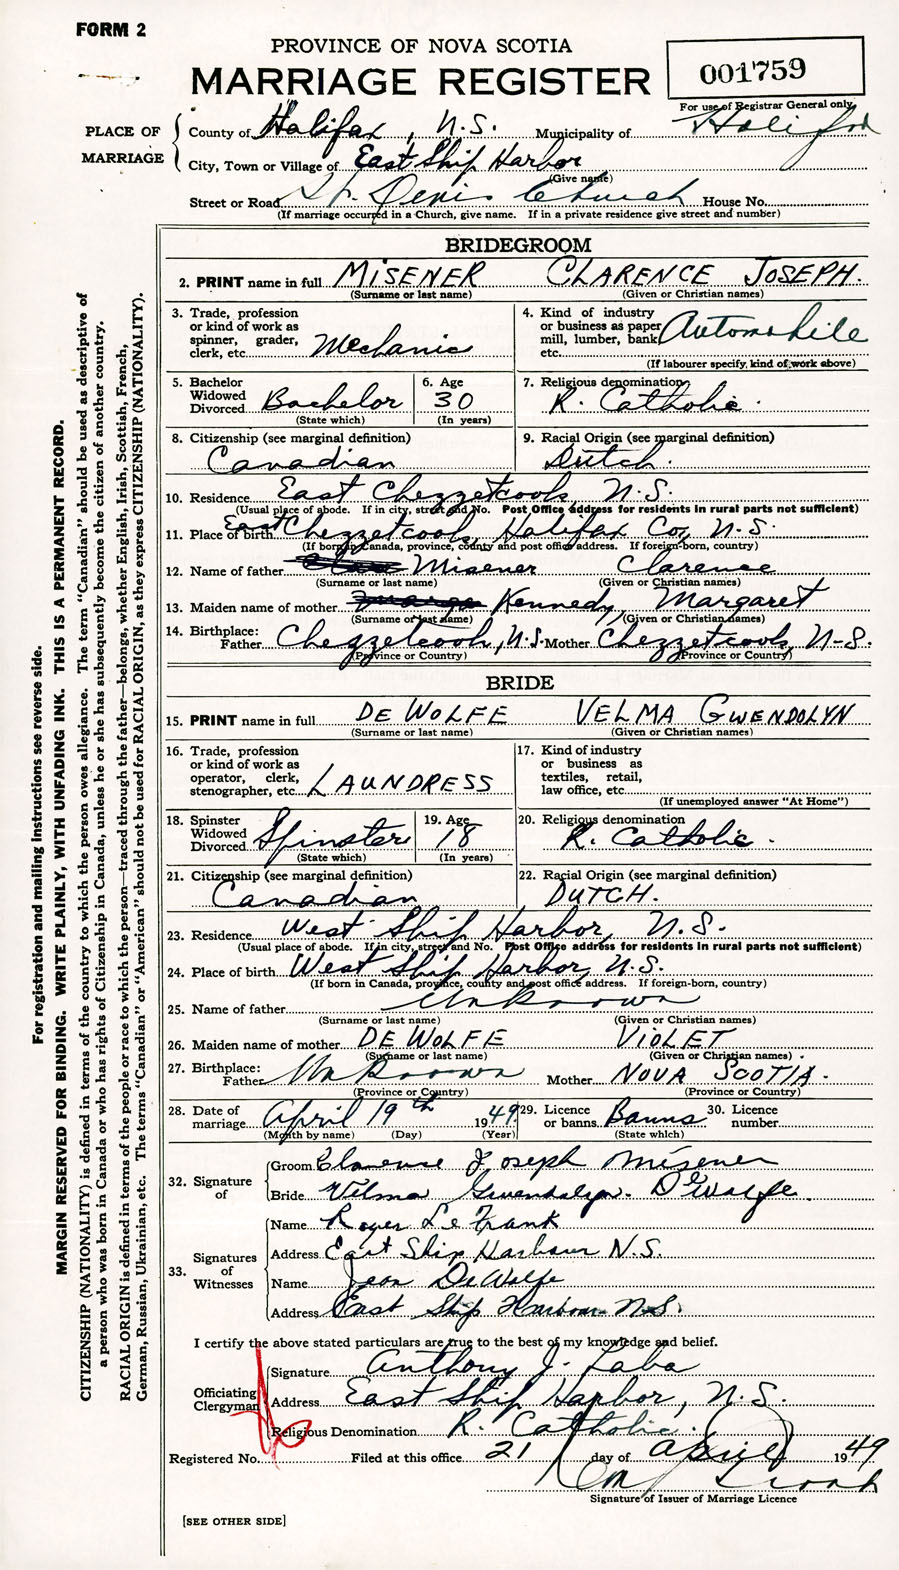 FORM 2
PROVINCE OF NOVA SCOTIA
MARRIAGE REGISTER
001759
For use of Registrar General only
PLACE OF MARRIAGE
County of Halifax, N.S. Municipality of Halifax
City, Town or Village of East Ship Harbor
(Give name)
Street or Road St. Denis Church House No.
(If marriage occurred in a Church, give name. If in a private residence give street and number)
BRIDEGROOM
2. PRINT name in full MISENER CLARENCE JOSEPH.
(Surname or last name) (Given or Christian names)
3. Trade, profession or kind of work as spinner, grader, clerk, etc. Mechanic
4. Kind of industry or business as paper mill, lumber, bank etc. Automobile
(If labourer specify, kind of work above)
5. Bachelor Widowed Divorced Bachelor
(State which)
6. Age 30
(In years)
7. Religious denomination R. Catholic.
8. Citizenship (see marginal definition) Canadian
9. Racial Origin (see marginal definition) Dutch.
10. Residence East Chezzetcook, N.S.
(Usual place of abode. If in city, street and No. Post Office address for residents in rural parts not sufficient)
11. Place of birth East Chezzetcook, Halifax Co, N.S.
(If born in Canada, province, county and post office address. If foreign-born, country)
12. Name of father Misener Clarence
(Surname or last name) (Given or Christian names)
13. Maiden name of mother Kennedy, Margaret
(Surname or last name) (Given or Christian names)
14. Birthplace: Father Chezzetcook, N.S. Mother Chezzetcook, N-S.
(Province or Country) (Province or Country)
BRIDE
15. PRINT name in full DE WOLFE VELMA GWENDOLYN
(Surname or last name) (Given or Christian names)
16. Trade, profession or kind of work as operator, clerk, stenographer, etc. LAUNDRESS
17. Kind of industry or business as textiles, retail, law office, etc.
(If unemployed answer "At Home")
18. Spinster Widowed Divorced Spinster
(State which)
19. Age 18
(In years)
20. Religious denomination R. Catholic.
21. Citizenship (see marginal definition) Canadian
22. Racial Origin (see marginal definition) DUTCH.
23. Residence West Ship Harbor, N.S.
(Usual place of abode. If in city, street and No. Post Office address for residents in rural parts not sufficient)
24. Place of birth West Ship Harbor, N.S.
(If born in Canada, province, county and post office address. If foreign-born, country)
25. Name of father Unknown
(Surname or last name) (Given or Christian names)
26. Maiden name of mother DE WOLFE VIOLET
(Surname or last name) (Given or Christian names)
27. Birthplace: Father Unknown Mother NOVA SCOTIA.
(Province or Country) (Province or Country)
28. Date of marriage April 19th 1949
(Month by name) (Day) (Year)
29. Licence or banns Banns
(State which)
30. Licence number
32. Signature of
Groom Clarence Joseph Misener
Bride Velma Gwendolyn. DeWolfe
33. Signatures of Witnesses
Name Roger LeFrank
Address East Ship Harbour N.S.
Name Jean DeWolfe
Address East Ship Harbour N.S.
I certify the above stated particulars are true to the best of my knowledge and belief.
Officiating Clergyman
Signature Anthony J. Laba
Address East Ship Harbor, N.S.
Religious Denomination R. Catholic.
Registered No. Filed at this office 21 day of April 1949
Signature of Issuer of Marriage Licence
[SEE OTHER SIDE]
For registration and mailing instructions see reverse side.
MARGIN RESERVED FOR BINDING. WRITE PLAINLY, WITH UNFADING INK. THIS IS A PERMANENT RECORD.
CITIZENSHIP (NATIONALITY) is defined in terms of the country to which the person owes allegiance. The term "Canadian" should be used as descriptive of
a person who was born in Canada or who has rights of Citizenship in Canada, unless he or she has subsequently become the citizen of another country.
RACIAL ORIGIN is defined in terms of the people or race to which the person—traced through the father—belongs, whether English, Irish, Scottish, French,
German, Russian, Ukrainian, etc. The terms "Canadian" or "American" should not be used for RACIAL ORIGIN, as they express CITIZENSHIP (NATIONALITY).